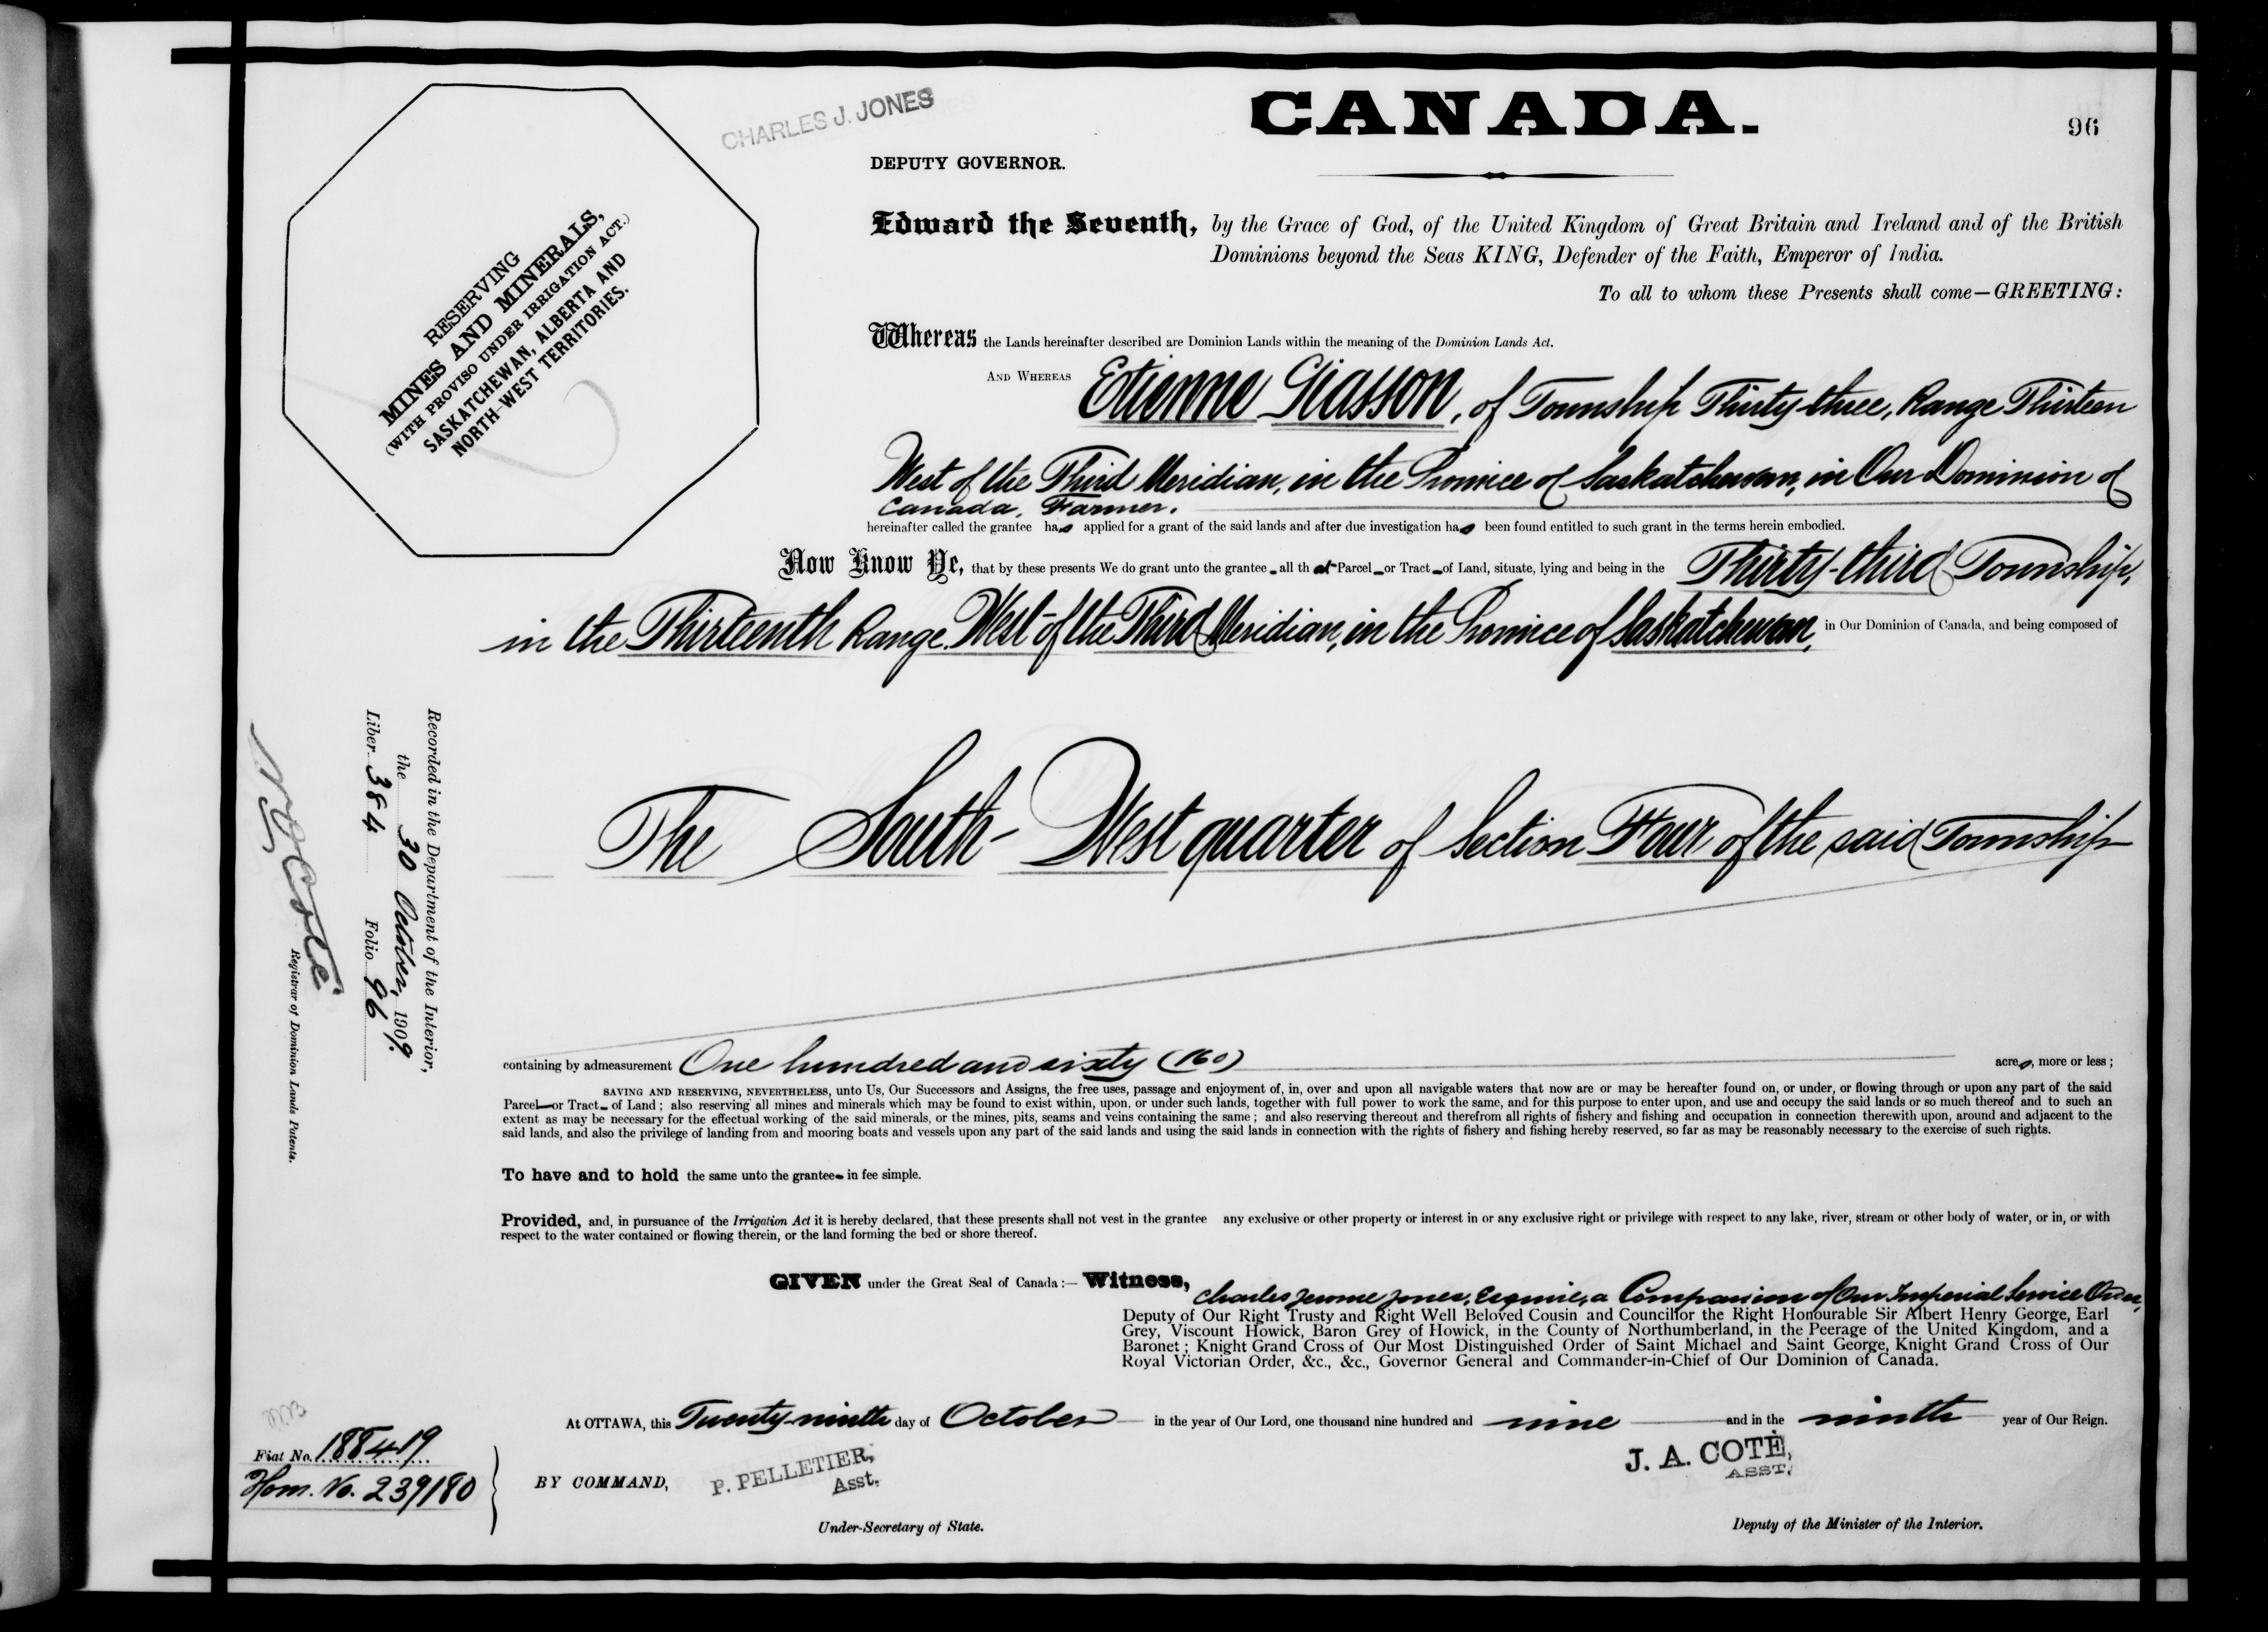 CHARLES J. JONES
CANADA.
96
DEPUTY GOVERNOR.
RESERVING
MINES AND MINERALS,
(WITH PROVISO UNDER IRRIGATION ACT.)
SASKATCHEWAN, ALBERTA AND
NORTH-WEST TERRITORIES.
Edward the Seventh, by the Grace of God, of the United Kingdom of Great Britain and Ireland and of the British
Dominions beyond the Seas KING, Defender of the Faith, Emperor of India.
To all to whom these Presents shall come—GREETING:
Whereas the Lands hereinafter described are Dominion Lands within the meaning of the Dominion Lands Act.
AND WHEREAS Etienne Giasson, of Township Thirty-three, Range Thirteen
West of the Third Meridian, in the Province of Saskatchewan, in Our Dominion of
Canada, Farmer.
hereinafter called the grantee has applied for a grant of the said lands and after due investigation has been found entitled to such grant in the terms herein embodied.
Now Know Ye, that by these presents We do grant unto the grantee all that Parcel or Tract of Land, situate, lying and being in the Thirty-third Township,
in the Thirteenth Range, West of the Third Meridian, in the Province of Saskatchewan, in Our Dominion of Canada, and being composed of
The South-West quarter of Section Four of the said Township
containing by admeasurement One hundred and sixty (160) acres, more or less;
SAVING AND RESERVING, NEVERTHELESS, unto Us, Our Successors and Assigns, the free uses, passage and enjoyment of, in, over and upon all navigable waters that now are or may be hereafter found on, or under, or flowing through or upon any part of the said
Parcel or Tract of Land; also reserving all mines and minerals which may be found to exist within, upon, or under such lands, together with full power to work the same, and for this purpose to enter upon, and use and occupy the said lands or so much thereof and to such an
extent as may be necessary for the effectual working of the said minerals, or the mines, pits, seams and veins containing the same; and also reserving thereout and therefrom all rights of fishery and fishing and occupation in connection therewith upon, around and adjacent to the
said lands, and also the privilege of landing from and mooring boats and vessels upon any part of the said lands and using the said lands in connection with the rights of fishery and fishing hereby reserved, so far as may be reasonably necessary to the exercise of such rights.
To have and to hold the same unto the grantee in fee simple.
Provided, and, in pursuance of the Irrigation Act it is hereby declared, that these presents shall not vest in the grantee any exclusive or other property or interest in or any exclusive right or privilege with respect to any lake, river, stream or other body of water, or in, or with
respect to the water contained or flowing therein, or the land forming the bed or shore thereof.
GIVEN under the Great Seal of Canada:— Witness, Charles Jerome Jones, Esquire, a Companion of Our Imperial Service Order,
Deputy of Our Right Trusty and Right Well Beloved Cousin and Councillor the Right Honourable Sir Albert Henry George, Earl
Grey, Viscount Howick, Baron Grey of Howick, in the County of Northumberland, in the Peerage of the United Kingdom, and a
Baronet; Knight Grand Cross of Our Most Distinguished Order of Saint Michael and Saint George, Knight Grand Cross of Our
Royal Victorian Order, &c., &c., Governor General and Commander-in-Chief of Our Dominion of Canada.
At OTTAWA, this Twenty-ninth day of October in the year of Our Lord, one thousand nine hundred and nine and in the ninth year of Our Reign.
BY COMMAND,
P. PELLETIER,
Asst.
Under-Secretary of State.
J. A. COTÉ,
ASST.
Deputy of the Minister of the Interior.
Recorded in the Department of the Interior,
the 30 October, 1909.
Liber 384 Folio 96
N O Coté
Registrar of Dominion Lands Patents.
Fiat No. 188419
Hom. No. 239180